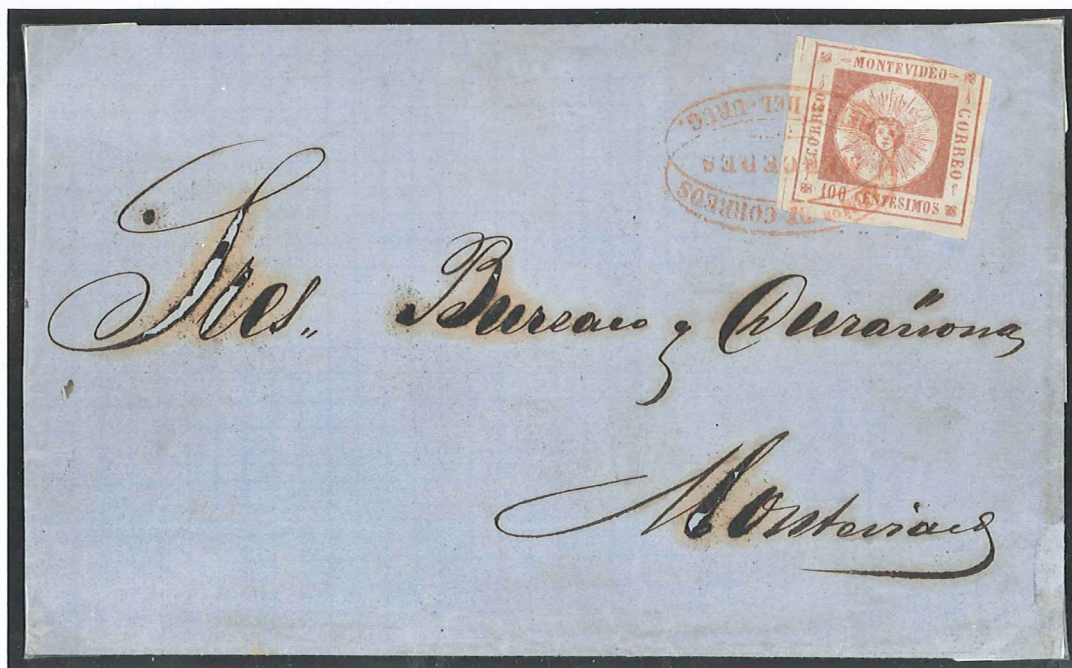 MONTEVIDEO
CORREO
CORREO
100 CENTESIMOS
DEL URUG.
MERCEDES
DE CORREOS
Sres,, Bureau y Durañona
Montevideo